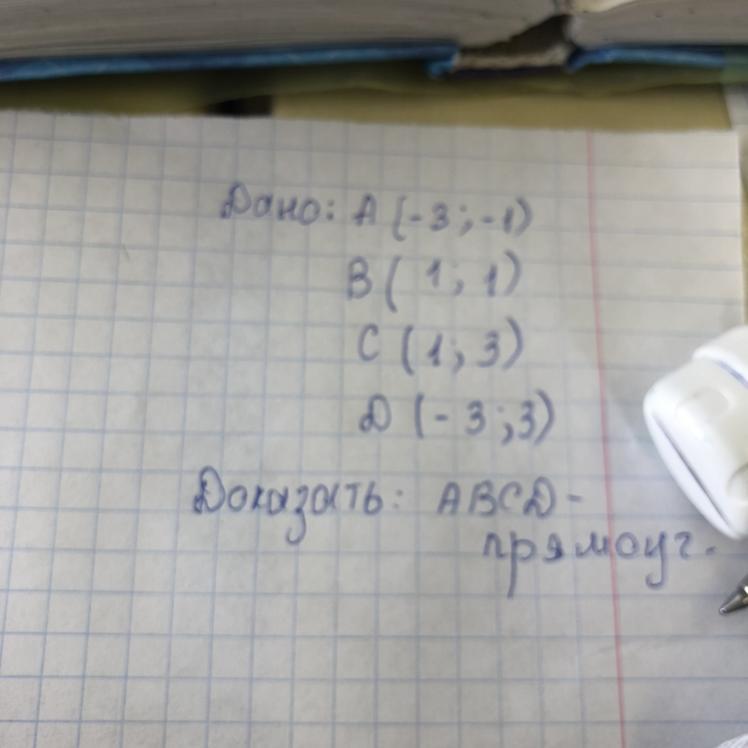 Дано: А (-3; -1)
В ( 1; 1)
С (1; 3)
D (- 3; 3)
Доказать: ABCD -
прямоуг.